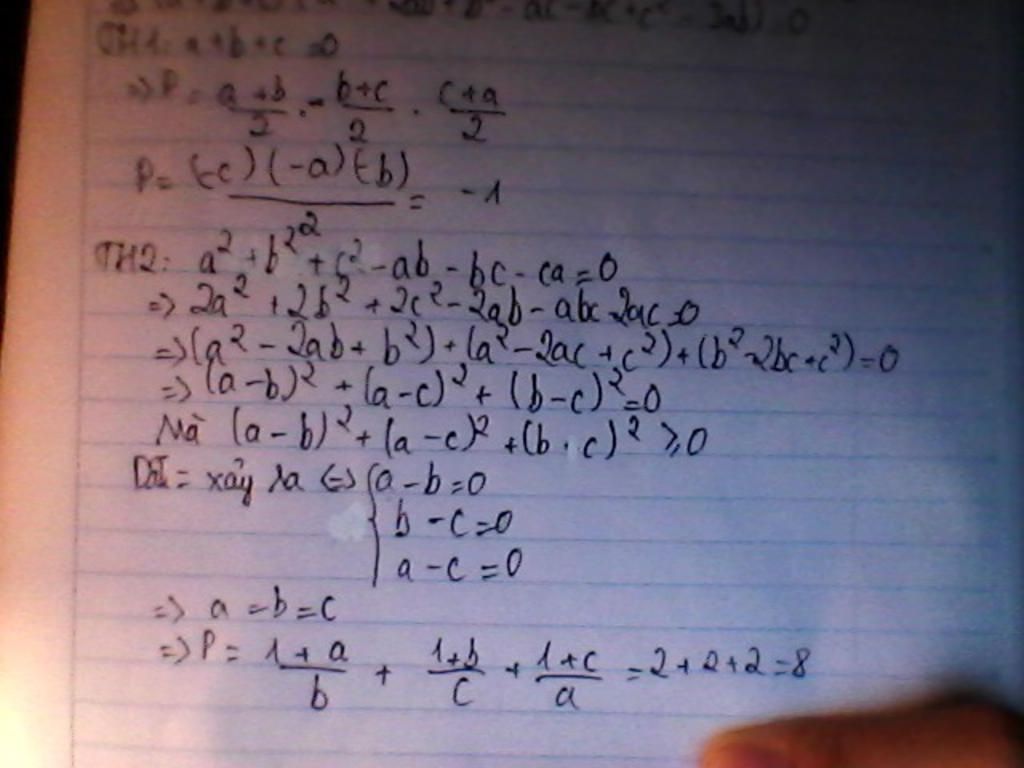 TH1: a+b+c=0
=> P = \frac{a+b}{2} \cdot - \frac{b+c}{2} \cdot \frac{c+a}{2}
P = \frac{(-c)(-a)(-b)}{} = -1
TH2: a² + b² ² + c² - ab - bc - ca = 0
=> 2a² + 2b² + 2c² - 2ab - abc 2ac = 0
=> (a² - 2ab + b²) + (a² - 2ac + c²) + (b² - 2bc + c²) = 0
=> (a-b)² + (a-c)² + (b-c)² = 0
Mà (a-b)² + (a-c)² + (b \cdot c)² ≥ 0
= xảy ra <=> { a-b=0
b-c=0
a-c=0
=> a = b = c
=> P = \frac{1+a}{b} + \frac{1+b}{c} + \frac{1+c}{a} = 2+2+2 = 8